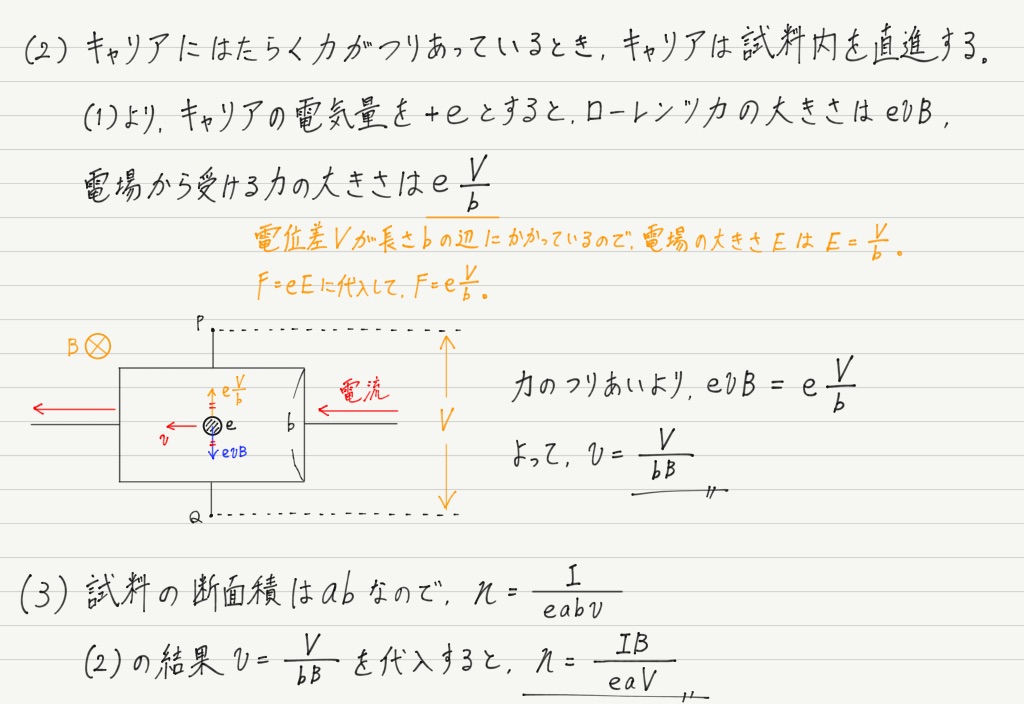 (2) キャリアにはたらく力がつりあっているとき, キャリアは試料内を直進する。
(1)より, キャリアの電気量を+eとすると, ローレンツ力の大きさは evB,
電場から受ける力の大きさは e V/b
電位差Vが長さbの辺にかかっているので, 電場の大きさEは E = V/b。
F = eEに代入して, F = e V/b。
P
B ⊗
e V/b
電流
力のつりあいより, evB = e V/b
v
e
b
V
evB
よって, v = V/bB
Q
(3) 試料の断面積はabなので, n = I/eabv
(2)の結果 v = V/bB を代入すると, n = IB/eaV